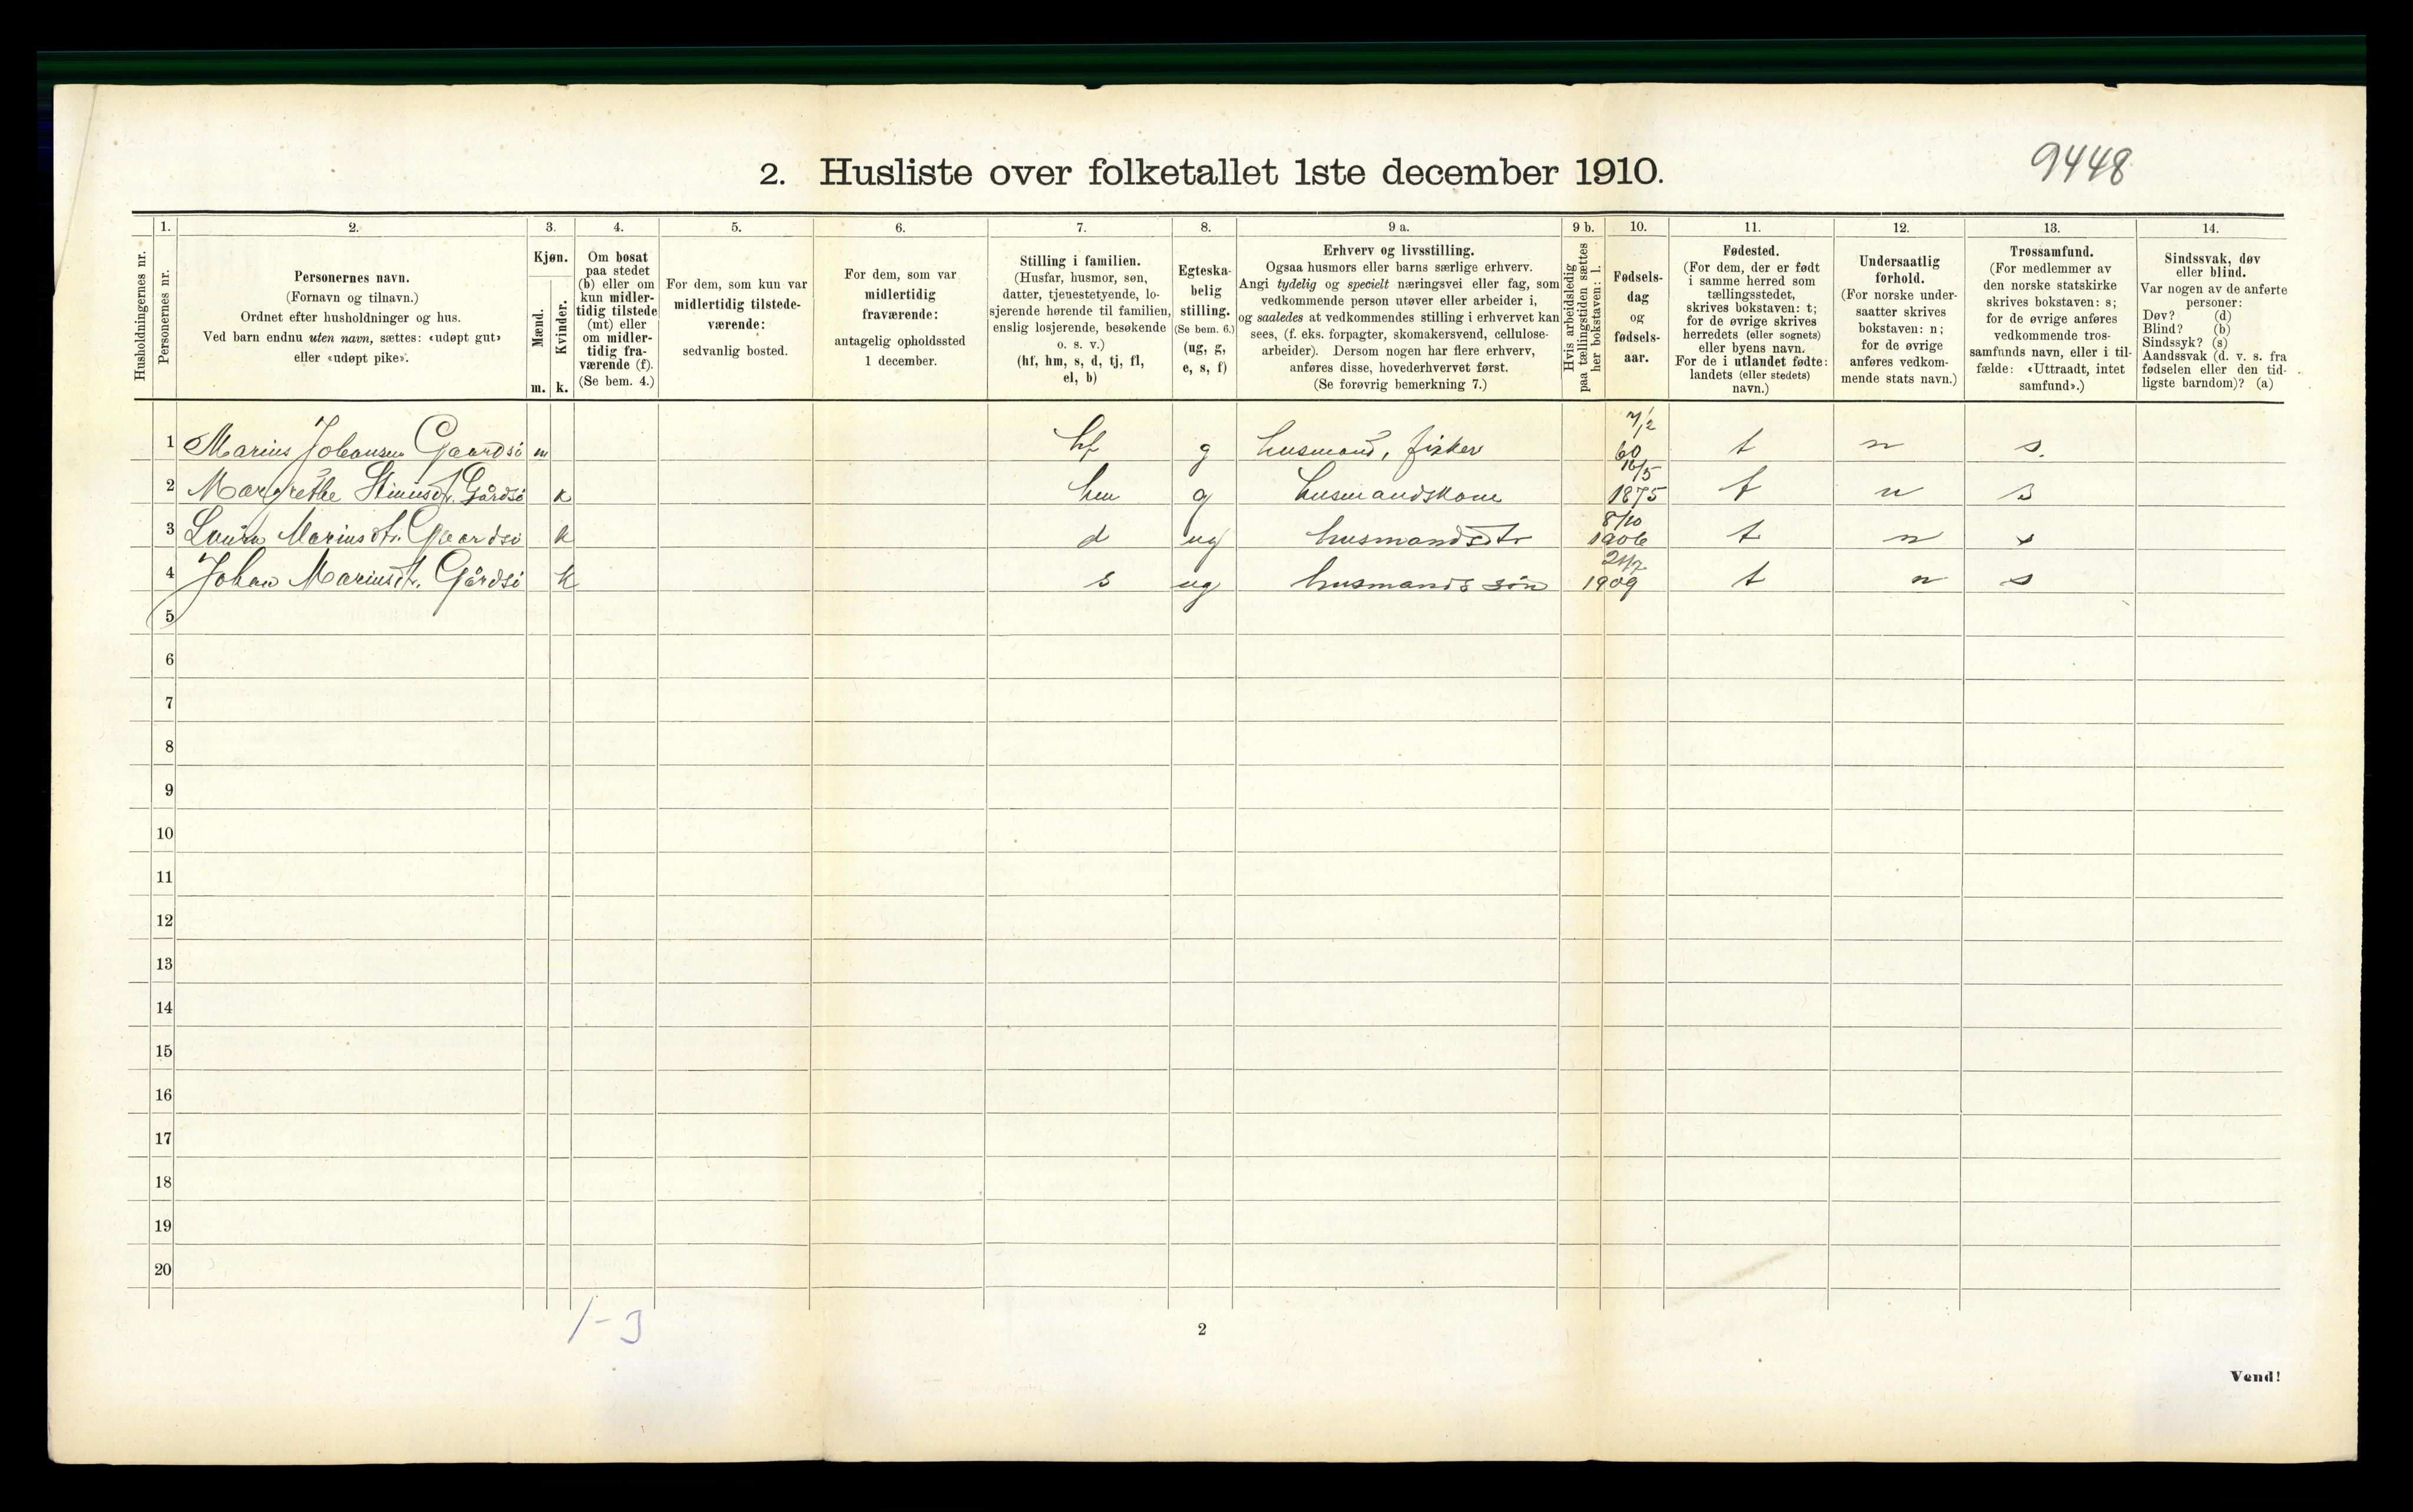 9448
2. Husliste over folketallet 1ste december 1910.
Husholdningernes nr.
1.
Personernes nr.
2.
Personernes navn.
(Fornavn og tilnavn.)
Ordnet efter husholdninger og hus.
Ved barn endnu uten navn, sættes: «udøpt gut»
eller «udøpt pike».
3.
Kjøn.
Mænd.
Kvinder.
m. k.
4.
Om bosat
paa stedet
(b) eller om
kun midler-
tidig tilstede
(mt) eller
om midler-
tidig fra-
værende (f).
(Se bem. 4.)
5.
For dem, som kun var
midlertidig tilstede-
værende:
sedvanlig bosted.
6.
For dem, som var
midlertidig
fraværende:
antagelig opholdssted
1 december.
7.
Stilling i familien.
(Husfar, husmor, søn,
datter, tjenestetyende, lo-
sjerende hørende til familien,
enslig losjerende, besøkende
o. s. v.)
(hf, hm, s, d, tj, fl,
el, b)
8.
Egteska-
belig
stilling.
(Se bem. 6.)
(ug, g,
e, s, f)
9 a.
Erhverv og livsstilling.
Ogsaa husmors eller barns særlige erhverv.
Angi tydelig og specielt næringsvei eller fag, som
vedkommende person utøver eller arbeider i,
og saaledes at vedkommendes stilling i erhvervet kan
sees, (f. eks. forpagter, skomakersvend, cellulose-
arbeider). Dersom nogen har flere erhverv,
anføres disse, hovederhvervet først.
(Se forøvrig bemerkning 7.)
9 b.
Hvis arbeidsledig
paa tællingstiden sættes
her bokstaven: l.
10.
Fødsels-
dag
og
fødsels-
aar.
11.
Fødested.
(For dem, der er født
i samme herred som
tællingsstedet,
skrives bokstaven: t;
for de øvrige skrives
herredets (eller sognets)
eller byens navn.
For de i utlandet fødte:
landets (eller stedets)
navn.)
12.
Undersaatlig
forhold.
(For norske under-
saatter skrives
bokstaven: n;
for de øvrige
anføres vedkom-
mende stats navn.)
13.
Trossamfund.
(For medlemmer av
den norske statskirke
skrives bokstaven: s;
for de øvrige anføres
vedkommende tros-
samfunds navn, eller i til-
fælde: «Uttraadt, intet
samfund».)
14.
Sindssvak, døv
eller blind.
Var nogen av de anførte
personer:
Døv? (d)
Blind? (b)
Sindssyk? (s)
Aandssvak (d. v. s. fra
fødselen eller den tid-
ligste barndom)? (a)
1 Marius Johansen Gaardsö m hf g husmand, fisker 7/2 60 t n s.
2 Margrethe Gårdsö k hm g husmandskone 16/5 1875 t n s
3 Laura Mariusdtr. Gaardsö k d ug husmandsdtr 8/10 1906 t n s
4 Johan Mariusdtr. Gårdsö k s ug husmands sön 1909 t n s
5
6
7
8
9
10
11
12
13
14
15
16
17
18
19
20
1-3
2
Vend!